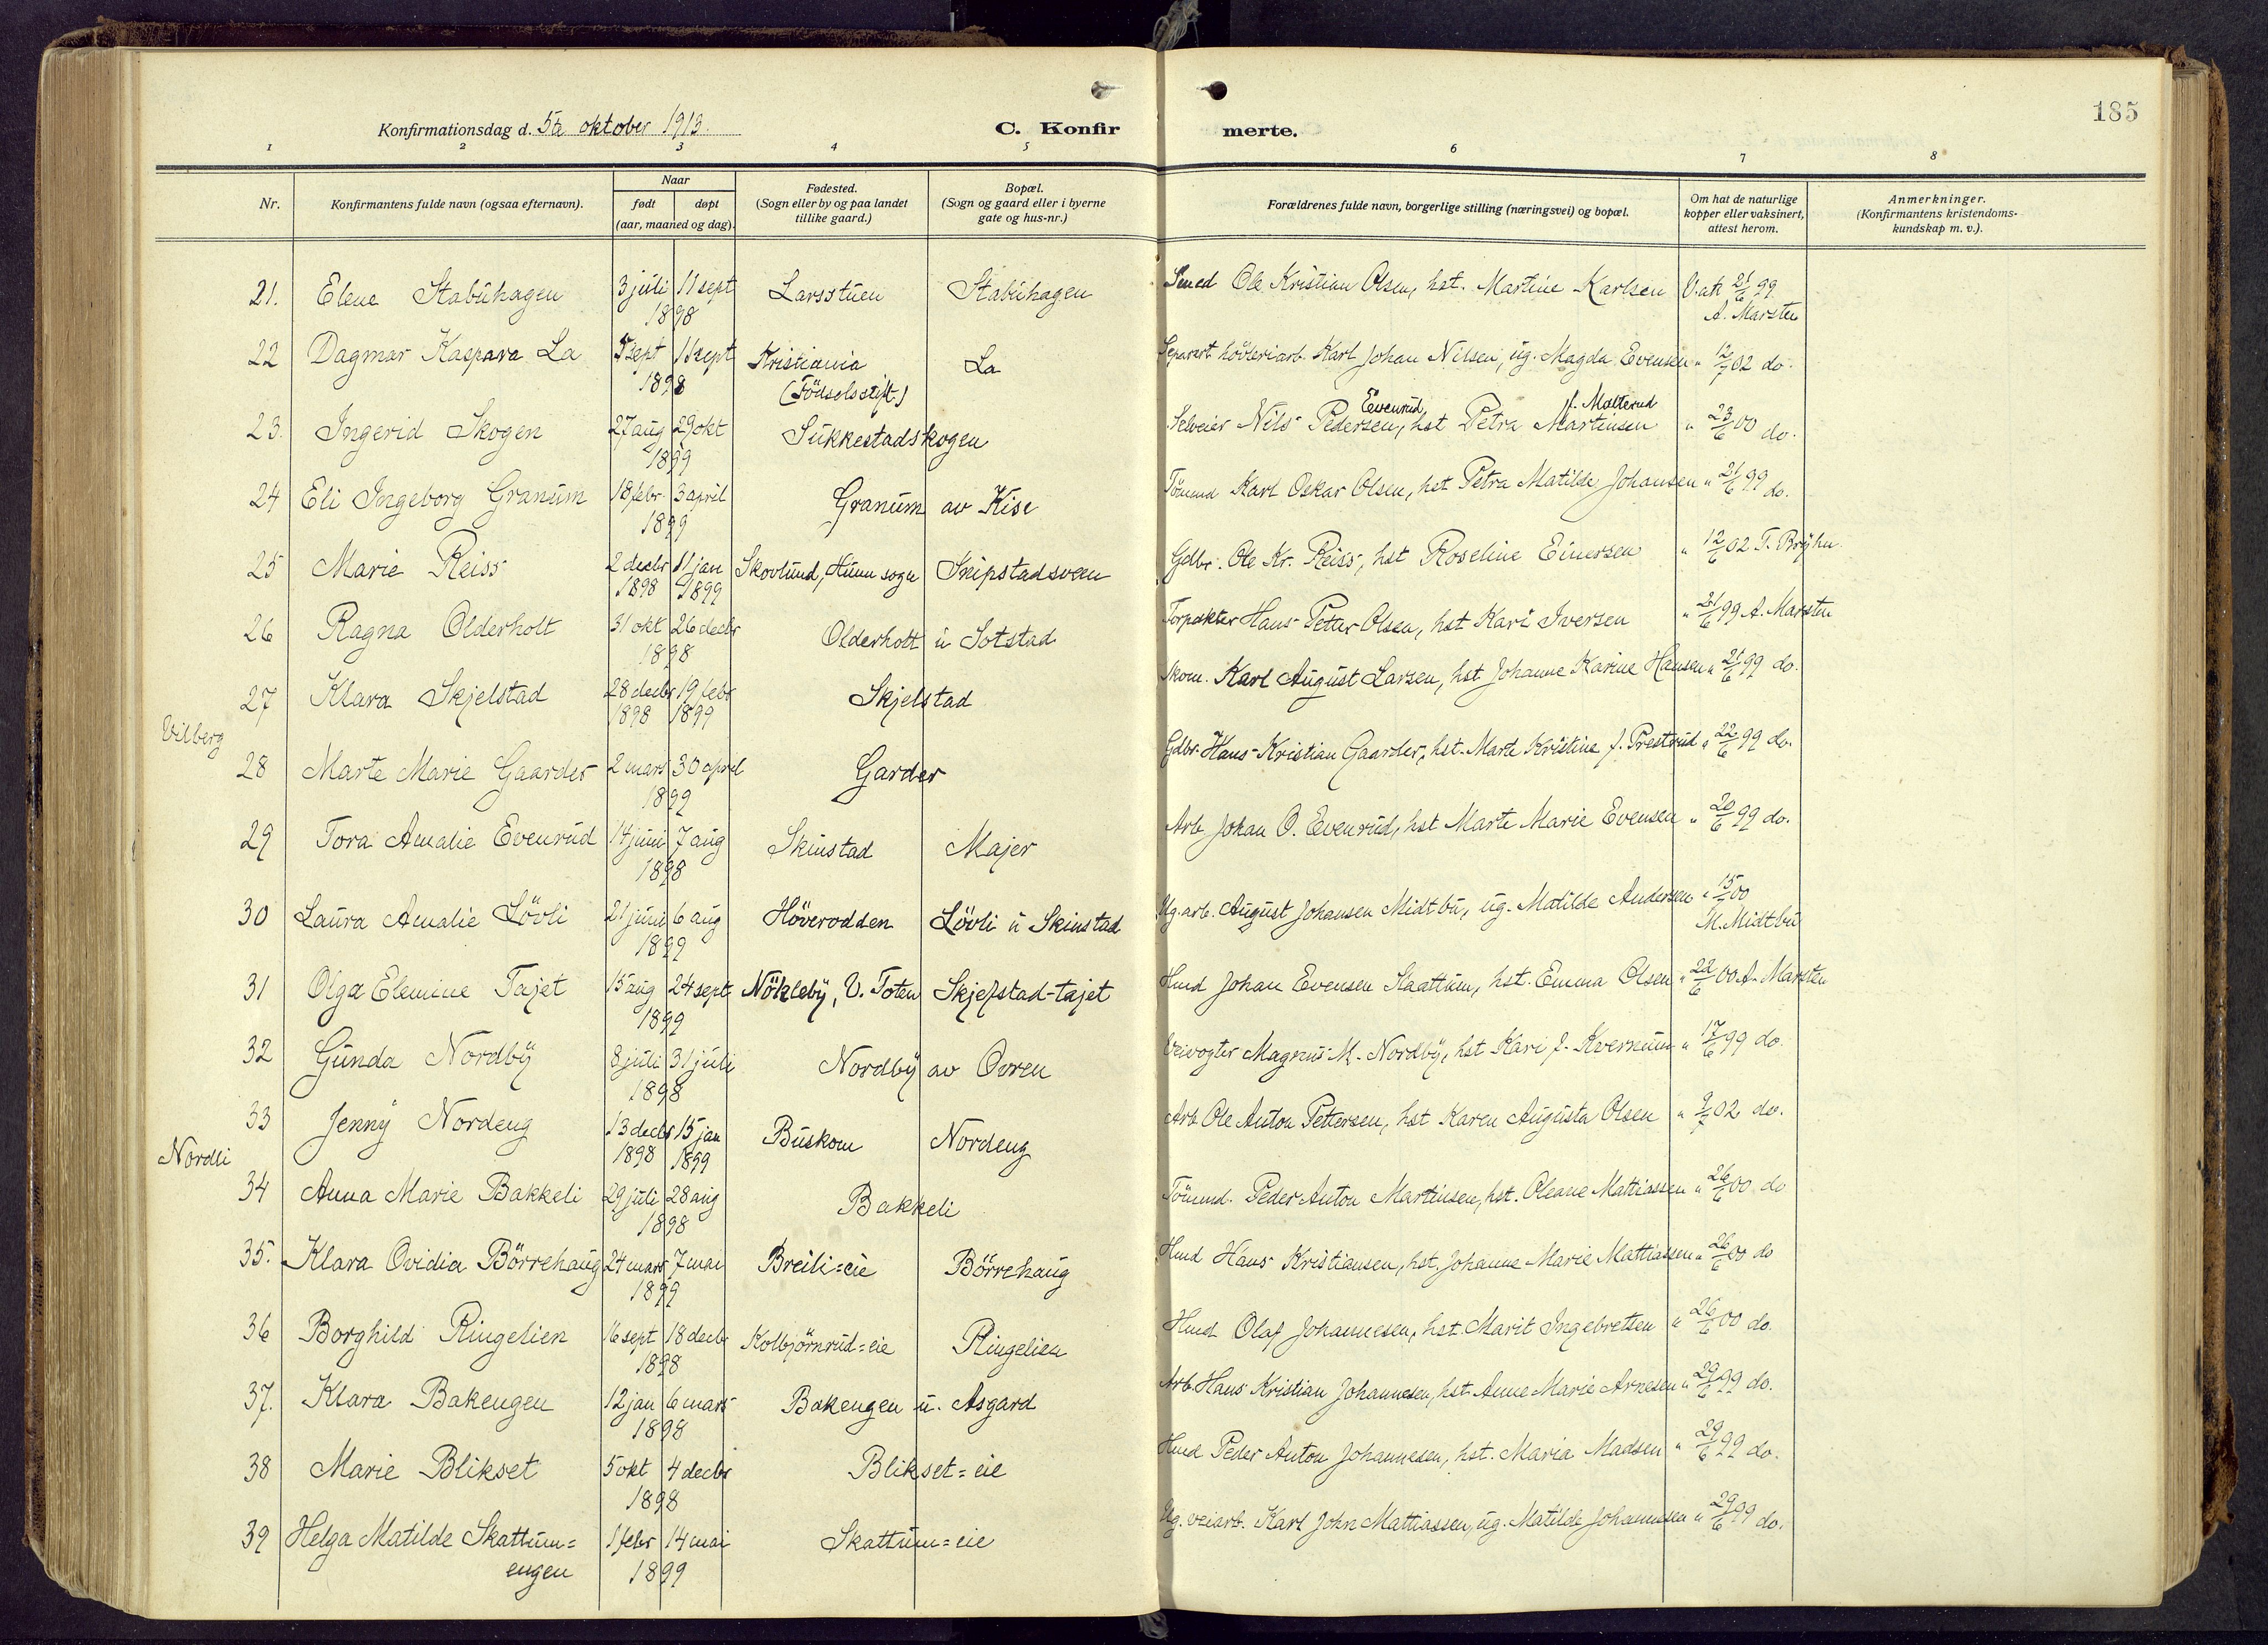 185
Konfirmationsdag d. 5te oktober 1913.
C. Konfirmerte.
1 2 3 4 5 6 7 8
Nr.
Konfirmantens fulde navn (ogsaa efternavn).
Naar
født døpt
(aar, maaned og dag).
Fødested.
(Sogn eller by og paa landet
tillike gaard.)
Bopæl.
(Sogn og gaard eller i byerne
gate og hus-nr.)
Forældrenes fulde navn, borgerlige stilling (næringsvei) og bopæl.
Om hat de naturlige
kopper eller vaksinert,
attest herom.
Anmerkninger.
(Konfirmantens kristendoms-
kundskap m. v.).
21. Elene Stabuhagen 3 juli 11 sept Larsstuen Stabuhagen Smed Ole Kristian Olsen, hst. Martine Karlsen V. att 21/6 99
1898 A. Marsten
22 Dagmar Kaspara La sept sept Kristiania La Separert høvleriarb. Karl Johan Nilsen, ug. Magda Evensen " 12/7 02 do.
1898 (Födselsstift.)
Evenrud f. Molterud
23. Ingerid Skogen 27 aug 29 okt Sukkestadskogen Selveier Nils Pedersen, hst Petra Martinsen " 23/6 00 do.
1899
24 Eli Ingeborg Granum 18 febr 3 april Granum av Kise Tömmd Karl Oskar Olsen, hst Petra Matilde Johansen " 21/6 99 do.
1899
25 Marie Reiss 2 decbr 11 jan Skovlund, Hunn sogn Skipstadsveen Gdbr. Ole Kr. Reiss, hst Roseline Einersen " 12/6 02 T. Bryhn
1898 1899
26 Ragna Olderholt 31 okt 26 decbr Olderholt u Sotstad Torpakter Hans Petter Olsen, hst Kari Iversen " 21/6 99 A. Marsten
1898
27 Klara Skjelstad 28 decbr 19 febr Skjelstad Skom. Karl August Larsen, hst. Johanne Karine Hansen " 21/6 99 do.
1898 1899
Vilberg
28 Marte Marie Gaarder 2 mars 30 april Garder Gdbr. Hans Kristian Gaarder, hst. Marte Kristine f. Prestrud " 22/6 99 do.
1899
29 Tora Amalie Evenrud 14 juni 7 aug Skinstad Majer Arb. Johan O. Evenrud, hst Marte Marie Evensen " 20/6 99 do.
1898
30 Laura Amalie Lövli 21 juni 6 aug Höverodden Lövli u Skinstad Ug. arb. August Johansen Midtbu, ug. Matilde Andersen " 15/ 00
1899 M. Midtbu
31 Olga Elemine Tajet 15 aug 24 sept Nökleby, V. Toten Skjelstad-tajet Hmd Johan Evensen Skattum, hst. Emma Olsen " 22/6 00 A. Marsten
1899
32 Gunda Nordby 8 juli 31 juli Nordby av Ovren Veivogter Magnus M. Nordby, hst Kari f. Kvernum " 17/6 99 do.
1898
33 Jenny Nordeng 13 decbr 15 jan Buskom Nordeng Arb Ole Anton Pettersen, hst Karen Augusta Olsen " 9/7 02 do.
1898 1899
Nordli
34 Anna Marie Bakkeli 29 juli 28 aug Bakkeli Tömmd. Peder Anton Martinsen, hst. Oleane Mattiassen " 26/6 00 do
1898
35. Klara Ovidia Börrehaug 24 mars 7 mai Breili=eie Börrehaug Hmd Hans Kristiansen, hst. Johanne Marie Mattiassen " 26/6 00 do
1899
36 Borghild Ringelien 16 sept 18 decbr Kolbjörnrud=eie Ringelien Hmd Olaf Johannesen, hst. Marit Ingebretsen " 26/6 00 do.
1898
37. Klara Bakengen 12 jan 6 mars Bakengen u. Asgard Arb. Hans Kristian Johannesen, hst. Anne Marie Arnesen " 29/6 99 do.
1898
38 Marie Blikset 5 okt 4 decbr Blikset=eie Hmd Peder Anton Johannesen, hst. Maria Madsen " 29/6 99 do.
1898
39 Helga Matilde Skattum= 1 febr 14 mai Skattum=eie Ug. veiarb. Karl John Mattiassen, ug. Matilde Johannsen " 29/6 99 do.
engen 1899